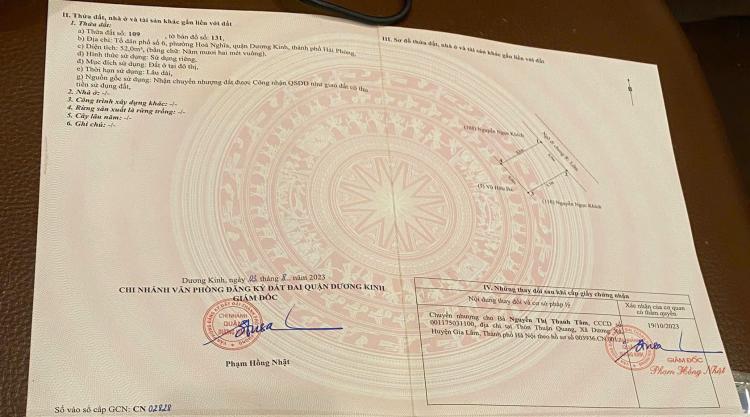 II. Thửa đất, nhà ở và tài sản khác gắn liền với đất
1. Thửa đất:
a) Thửa đất số: 109 , tờ bản đồ số: 131,
b) Địa chỉ: Tổ dân phố số 6, phường Hoà Nghĩa, quận Dương Kinh, thành phố Hải Phòng,
c) Diện tích: 52,0m², (bằng chữ: Năm mươi hai mét vuông),
d) Hình thức sử dụng: Sử dụng riêng,
đ) Mục đích sử dụng: Đất ở tại đô thị,
e) Thời hạn sử dụng: Lâu dài,
g) Nguồn gốc sử dụng: Nhận chuyển nhượng đất được Công nhận QSDĐ như giao đất có thu
tiền sử dụng đất,
2. Nhà ở: -/-
3. Công trình xây dựng khác: -/-
4. Rừng sản xuất là rừng trồng: -/-
5. Cây lâu năm: -/-
6. Ghi chú: -/-
Dương Kinh, ngày 03 tháng 8 năm 2023
CHI NHÁNH VĂN PHÒNG ĐĂNG KÝ ĐẤT ĐAI QUẬN DƯƠNG KINH
GIÁM ĐỐC
CHI NHÁNH
QUẬN
Phạm Hồng Nhật
Số vào sổ cấp GCN: CN 02828
III. Sơ đồ thửa đất, nhà ở và tài sản khác gắn liền với đất
(108) Nguyễn Ngọc Khích
(110) Nguyễn Ngọc Khích
IV. Những thay đổi sau khi cấp giấy chứng nhận
Nội dung thay đổi và cơ sở pháp lý
Xác nhận của cơ quan
có thẩm quyền
Chuyển nhượng cho Bà Nguyễn Thị Thanh Tâm, CCCD số
001175031100, địa chỉ tại Thôn Thuận Quang, Xã Dương Xá,
Huyện Gia Lâm, Thành phố Hà Nội theo hồ sơ số 003936.CN.001
19/10/2023
GIÁM ĐỐC
Phạm Hồng Nhật